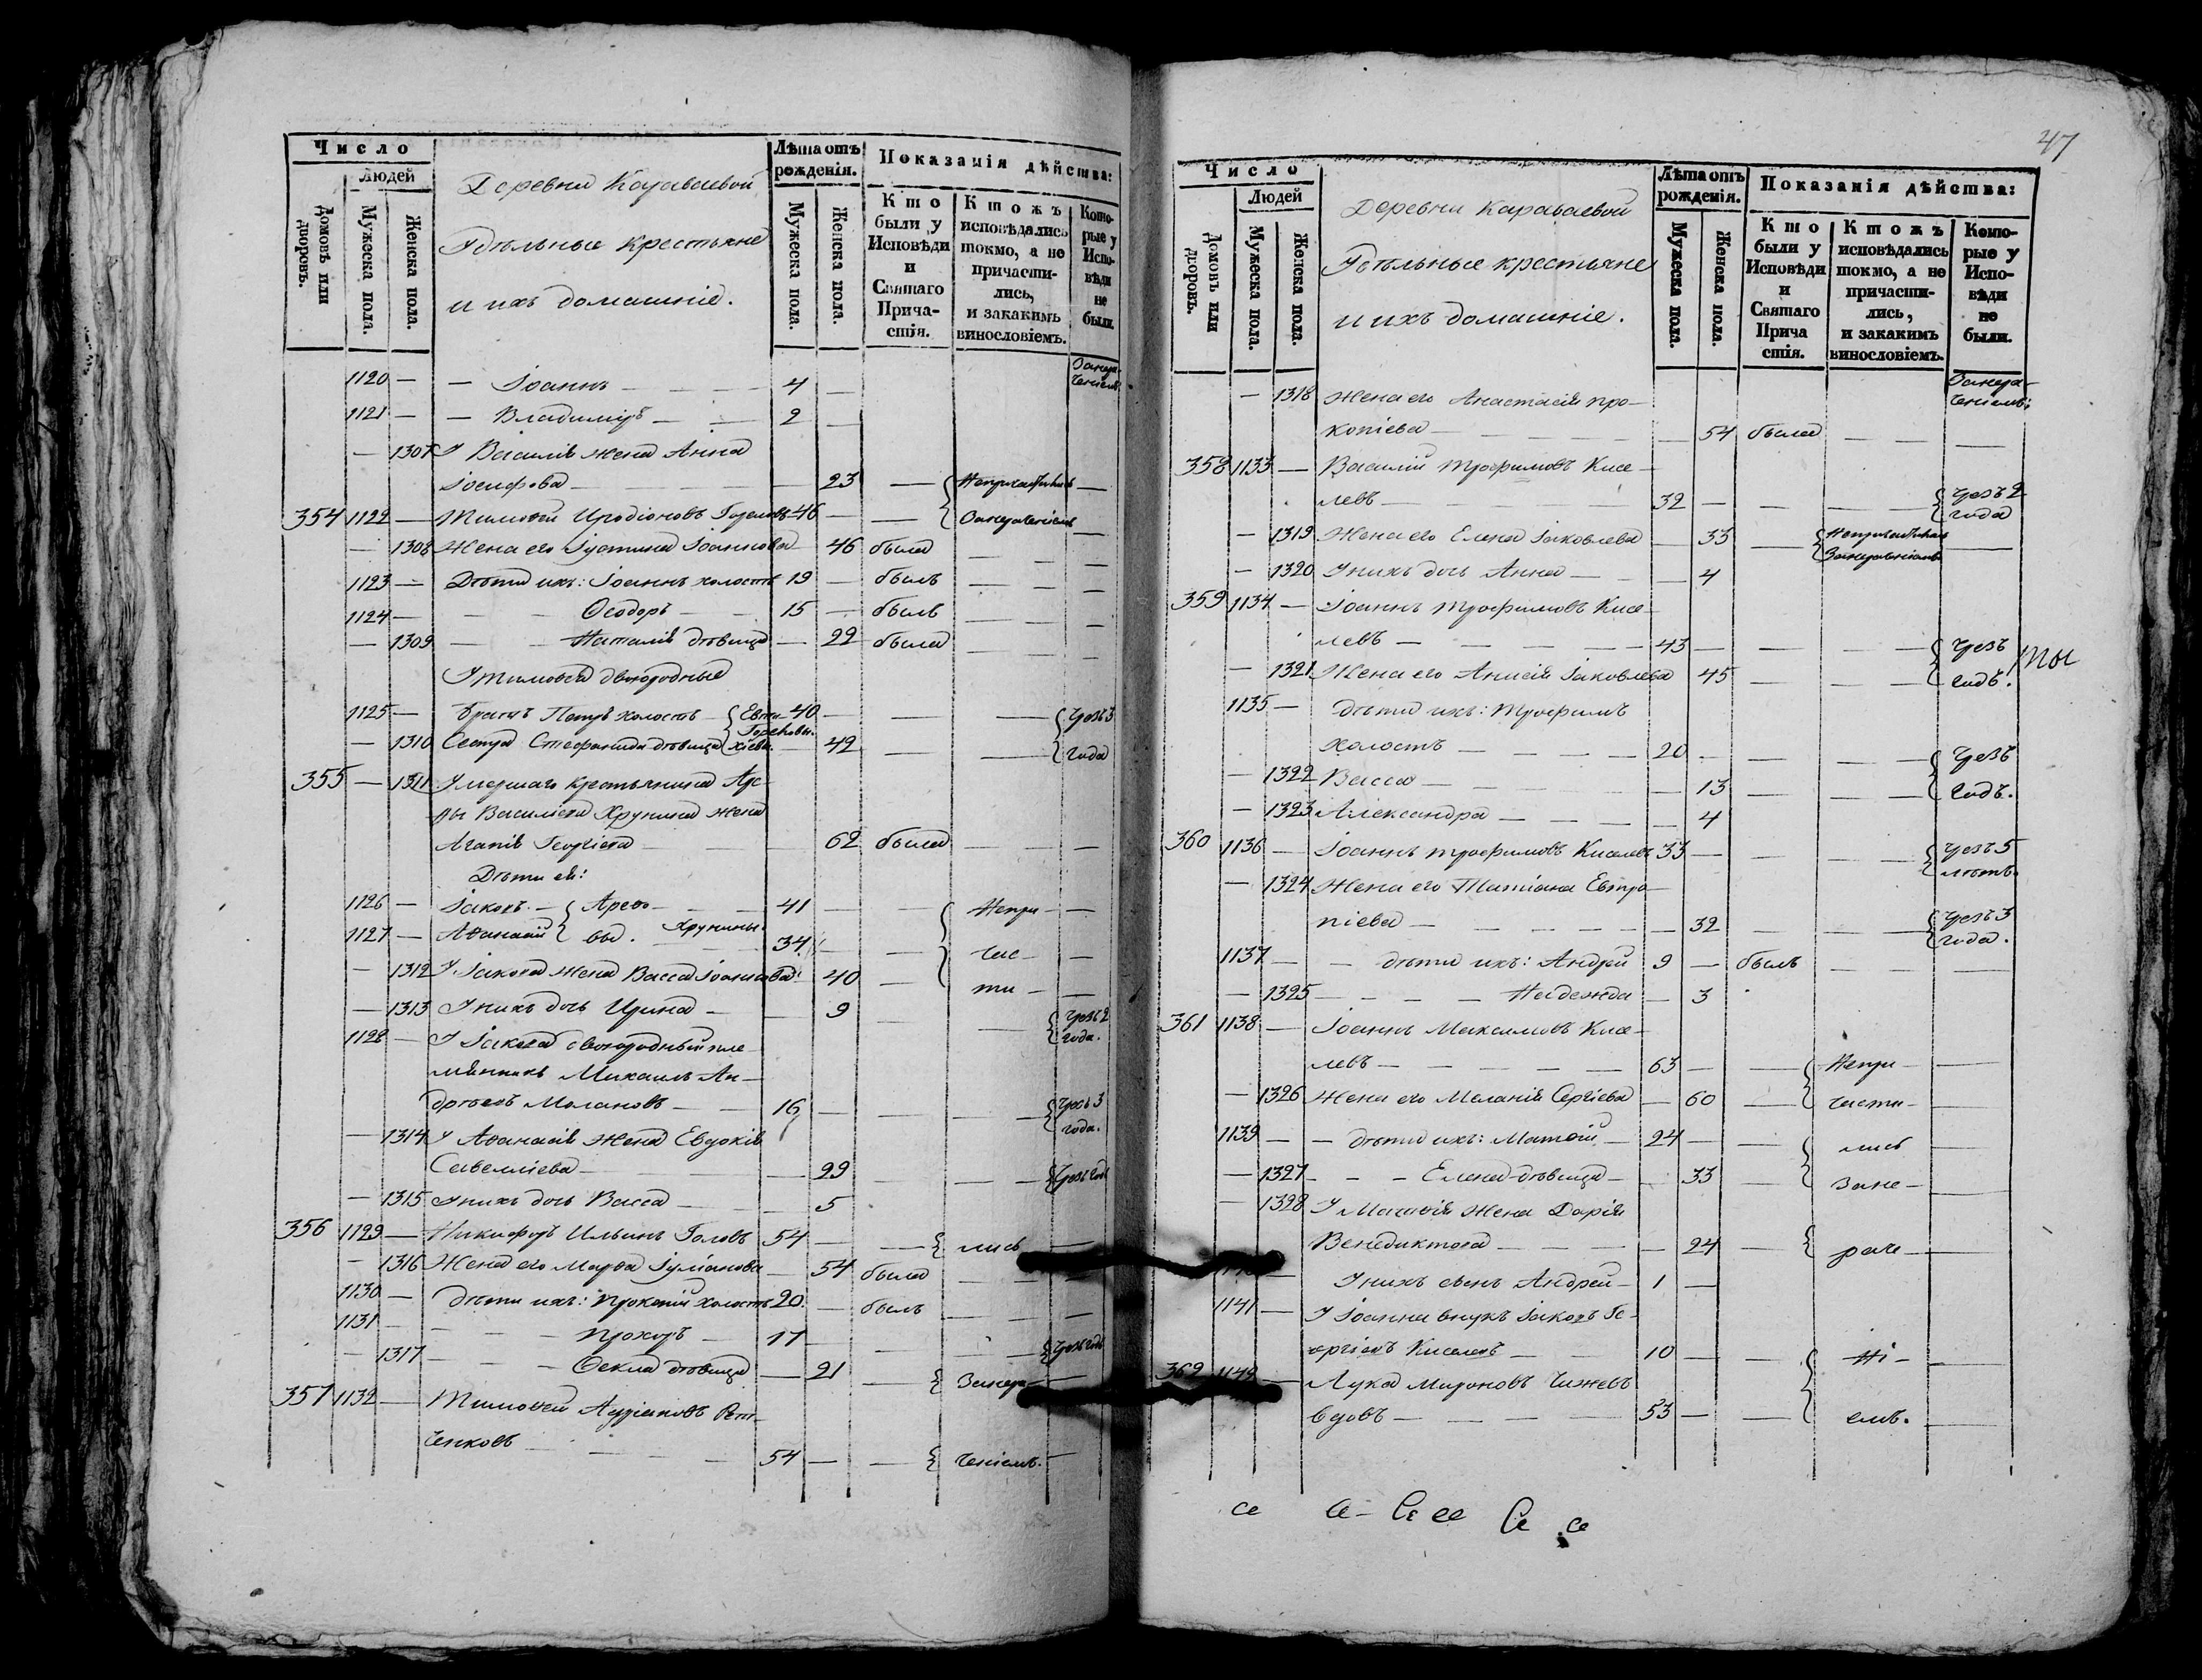 Число
Людей
Домовъ или дворовъ.
Мужеска пола.
Женска пола.
Деревни Караваевой
Удѣльные крестьяне
и ихъ домашніе.
Лѣта отъ рожденія.
Мужеска пола.
Женска пола.
Показанія дѣйства:
Кто были у Исповѣди и Святаго Прича-стія.
Ктожъ исповѣдались токмо, а не причасти-лись, и закакимъ винословіемъ.
Кото-рые у Испо-вѣди не были.
1120 — — Іоаннъ — — — 4 —
1121 — — Владиміръ — — 2 —
— 1307 У Василія жена Анна
Іосифова — — — 23 —
354 1122 — Тимоѳей Иродіоновъ 46 — —
— 1308 Жена его Іустина Іоаннова — 46 была — —
1123 — Дѣти ихъ: Іоаннъ холостъ 19 — былъ — —
1124 — Ѳеодоръ — — 15 — былъ — —
— 1309 — — Наталія дѣвица — 22 была — —
У Тимоѳея двоюродные
1125 — братъ Петръ холостъ — 40 — — — чрезъ 3
— 1310 Сестра Стефанида дѣвица — 42 — — года
355 — 1311 Умершаго крестьянина Аре-
ѳы Васильева Хрунина жена
Агапія Георгіева — — 62 была — —
Дѣти ея:
1126 — Іаковъ — Арефо — — 41 — — Непри — —
1127 — Аѳанасій вы. Хрунины 34 — — час — —
— 1312 У Іакова жена Васса Іоаннова — 40 — ти — —
— 1313 У нихъ дочь Ирина — — 9 — — чрезъ 2
года.
1128 — У Іакова двоюродный пле-
мянникъ Михаилъ Ан-
дреевъ Молановъ — — 16 — — — чрезъ 3
года.
— 1314 У Аѳанасія жена Евдокія
Савелліева — — — 29 — — чрезъ годъ
— 1315 У нихъ дочь Васса — — 5
356 1129 — Никифоръ Ильинъ 54 — — лись —
— 1316 Жена его Марѳа — 54 была — —
1130 — дѣти ихъ: Прокопій холостъ 20. — былъ — —
1131 — — — — Прохоръ — 17 — — — чрезъ годъ
— 1317 — — — Ѳекла дѣвица — 21 — Занера — —
357 1132 — Тимоѳей Адріановъ
ченковъ — — — 54 — — ченіемъ. —
47
Число
Людей
Домовъ или дворовъ.
Мужеска пола.
Женска пола.
Деревни Караваевой
Удѣльные крестьяне
и ихъ домашніе.
Лѣта отъ рожденія.
Мужеска пола.
Женска пола.
Показанія дѣйства:
Кто были у Исповѣди и Святаго Прича стія.
Ктожъ исповѣдались токмо, а не причасти-лись, и закакимъ винословіемъ.
Кото-рые у Испо-вѣди не были.
— 1318 Жена его Анастасія Про-
копіева — — — — 54 была — — —
358 1133 — Василій Трофимовъ Кисе-
левъ — — — 32 — — — чрезъ 2
года
— 1319 Жена его Елена Іаковлева — 33 —
— 1320 У нихъ дочь Анна — — 4
359 1134 — Іоаннъ Трофимовъ Кисе-
левъ — — — — 43 — — — чрезъ
— 1321 Жена его Анисія Іаковлева 45 — — — годъ.
1135 — дѣти ихъ: Трофимъ
холостъ — — — — 20 — — — чрезъ
— 1322 Васса — — — — 13 — — — годъ.
— 1323 Александра — — — — 4
360 1136 — Іоаннъ Трофимовъ Киселевъ 33 — — — чрезъ 5
лѣтъ.
— 1324 Жена его Татіана Евтро-
піева — — — — — 32 — — — чрезъ 3
года.
1137 — — дѣти ихъ: Андрей 9 — былъ — — —
— 1325 — — — — Надежда — 3
361 1138 — Іоаннъ Максимовъ Кисе-
левъ — — — — — 63 — — Непри — —
— 1326 Жена его Меланія Сергіева — 60 — части — —
1139 — — дѣти ихъ: Матѳій — 24 — — лись —
— 1327 — — Елена дѣвица — — 33 — Зане — —
— 1328 У Матѳія жена Дарія
Венедиктова — — — — 24 — раче — —
— У нихъ сынъ Андрей — 1 —
1141 — У Іоанна внукъ Іаковъ Ге-
оргіевъ Киселевъ — — 10 — — ні — —
362 1142 — Лука Мироновъ Чижевъ
вдовъ — — — — 53 — — емъ. —